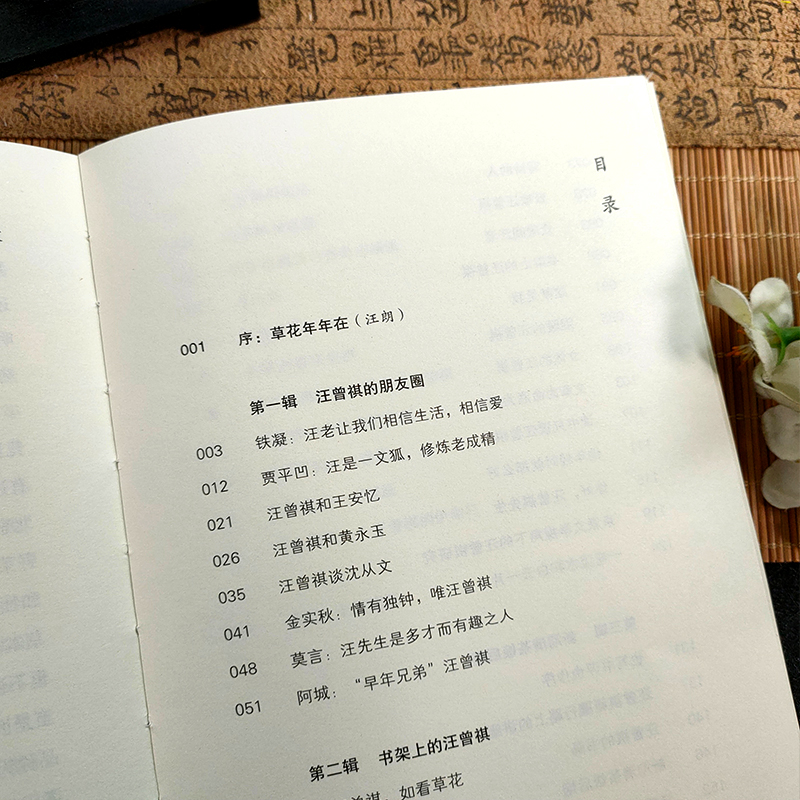 目录
001 序：草花年年在（汪朗）
第一辑 汪曾祺的朋友圈
003 铁凝：汪老让我们相信生活，相信爱
012 贾平凹：汪是一文狐，修炼老成精
021 汪曾祺和王安忆
026 汪曾祺和黄永玉
035 汪曾祺谈沈从文
041 金实秋：情有独钟，唯汪曾祺
048 莫言：汪先生是多才而有趣之人
051 阿城：“早年兄弟”汪曾祺
第二辑 书架上的汪曾祺
曾祺，如看草花